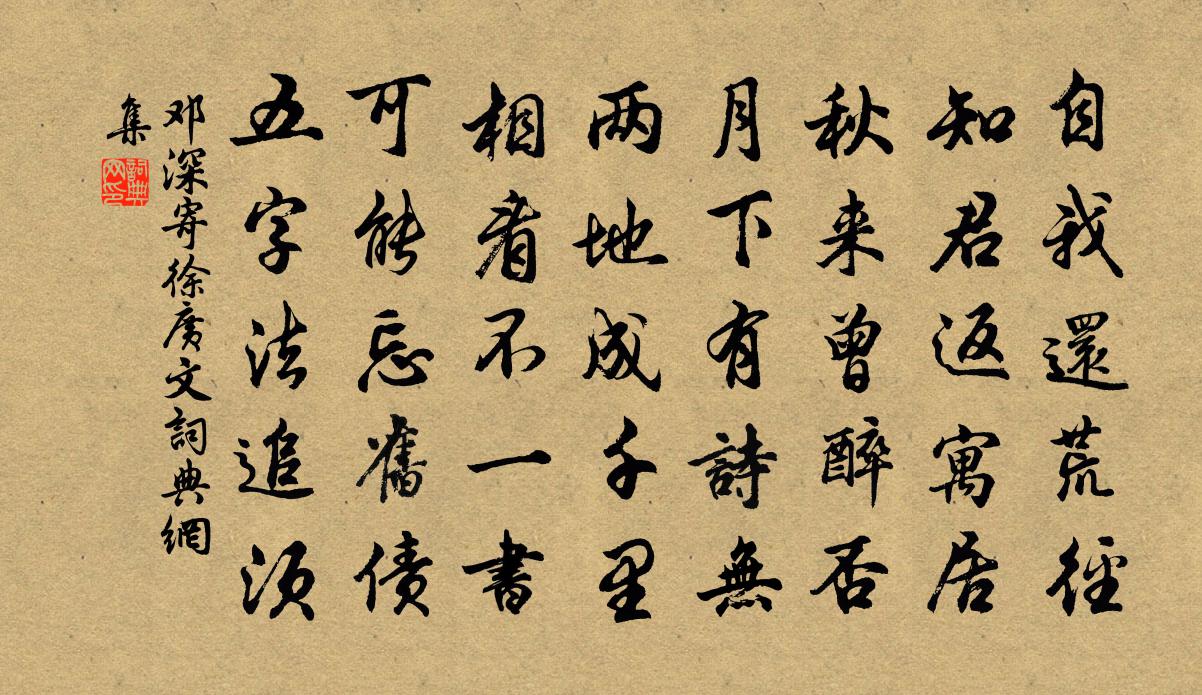 自我還荒徑
知君返寓居
秋来曾醉否
月下有詩無
两地成千里
相看不一書
可能忘舊债
五字法追须
邓深寄徐广文詞典網
集
詞典
网印